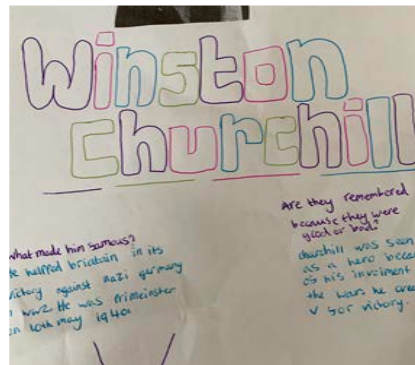 Winston
Churchill
what made him famous?
He helped briatain in its
victory against nazi germany
in ww2. He was primeinster
on 10th may 1940
Are they remembered
because they were
good or bad?
churchill was seen
as a hero becau
of his involment
the wars he crea
V for victory.